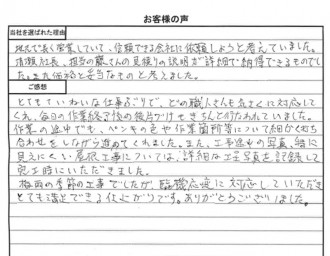 お客様の声
当社を選ばれた理由
地元で長く営業していて、信頼できる会社に依頼しようと考えていました。
社長、担当の さんの見積りの説明が詳細で納得できるものでし
た。また価格も妥当なものと考えました。
ご感想
とてもていねいな仕事ぶりで、どの職人さんも気さくに対応して
くれ、毎日の作業終了後の後片づけもきちんと行なわれていました。
作業の途中でも、ペンキの色や作業箇所等について細かく打ち
合わせをしながら進めてくれました。また、工事途中の写真、特に
見えにくい屋根工事については、詳細な工事写真を記録して
完工時にいただきました。
梅雨の季節の工事でしたが、臨機応変に対応していただき
とても満足できる仕上がりです。ありがとうございました。